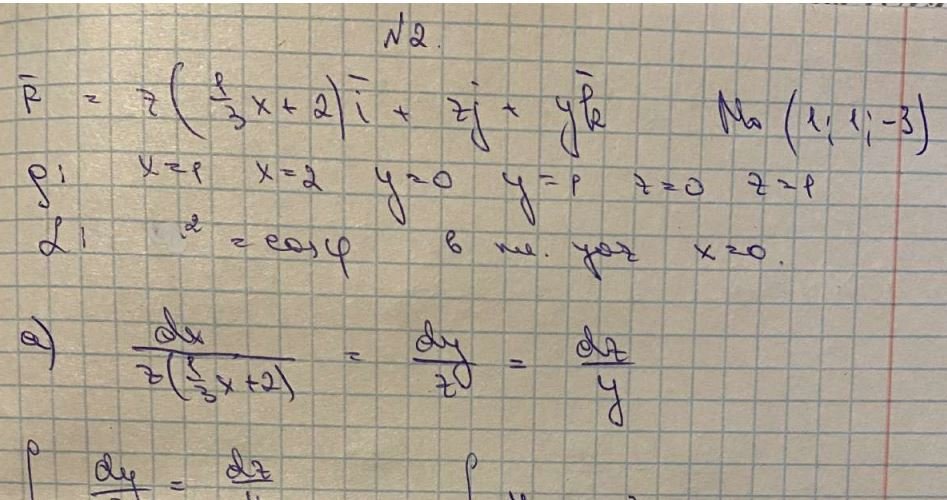 N2.
F̄ = z(1/3 x + 2)ī + zj̄ + yk̄ M₀ (1; 1; -3)
ρ: x=1 x=2 y=0 y=1 z=0 z=1
L: ² = cosφ в пл. yoz x=0.
a) dx / z(1/3 x+2) = dy / z = dz / y
∫ dy = dz ∫